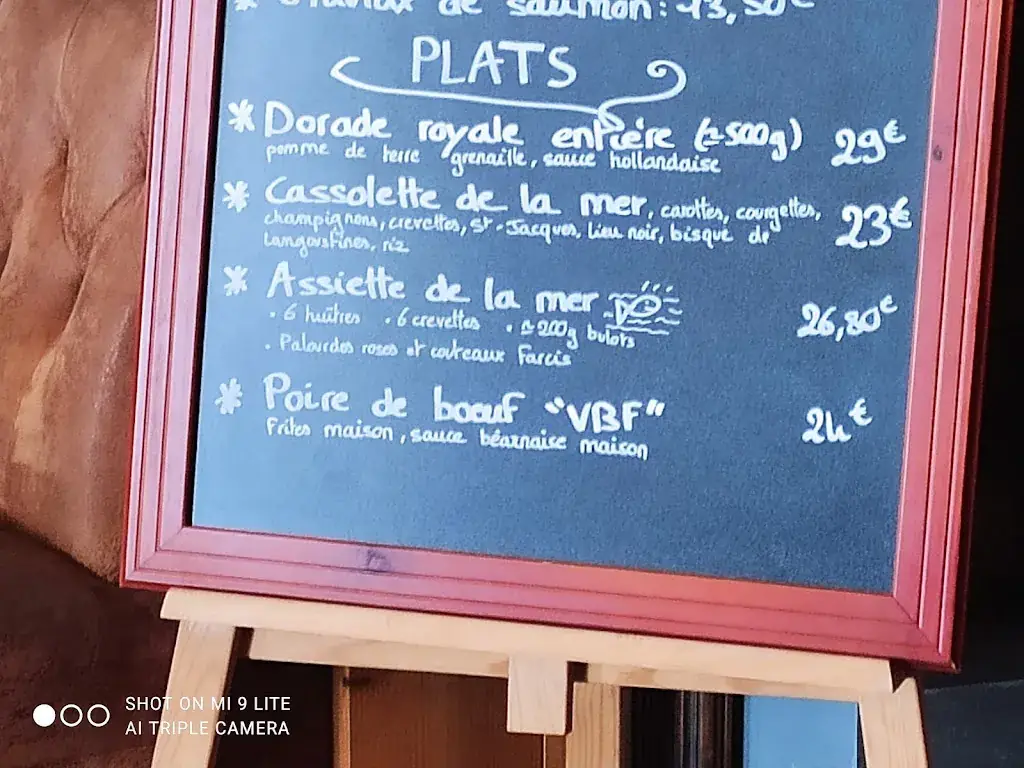 de saumon: 13,50€
PLATS
* Dorade royale entière (≃500g) 29€
pomme de terre grenaille, sauce hollandaise
* Cassolette de la mer, carottes, courgettes, 23€
champignons, crevettes, St-Jacques, Lieu noir, bisque de
langoustines, riz
* Assiette de la mer 26,80€
. 6 huîtres . 6 crevettes . ≃ 200g bulots
. Palourdes roses et couteaux Farcis
* Poire de boeuf "VBF" 24€
Frites maison, sauce béarnaise maison
SHOT ON MI 9 LITE
AI TRIPLE CAMERA